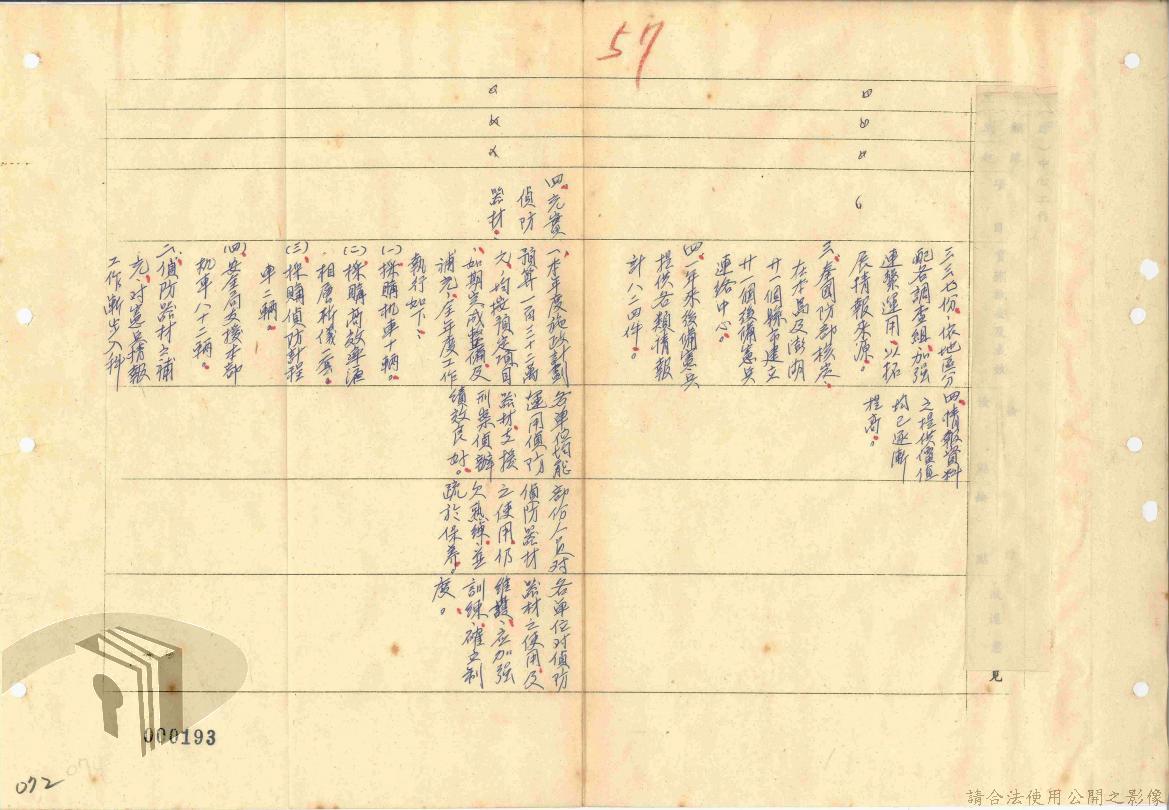 57
三三七份，依地區分
配各調查組，加強
連繫運用，以拓
展情報來源。
三、奉國防部核定
在本島及澎湖
廿一個縣市建立
廿一個後備憲兵
連絡中心。
四、一年來後備憲兵
提供各類情報
計八二四件。
四、情報資料
之提供價值
均已逐漸
提高。
四、充實
偵防
器材、
一、本年度施政計劃
預算一百三十二萬
元，均按預定項目
如期完成整備及
補充，全年度工作
執行如下：
(一)採購机車十輛。
(二)採購高效率液
相層析儀一套。
(三)採購偵防計程
車二輛。
(四)安全局支援本部
机車八十二輛。
二、偵防器材之補
充，對憲兵情報
工作漸步入科
各單位均能
運用偵防
器材支援
刑案偵辦
績效良好。
部份人員對
偵防器材
之使用仍
欠熟練，並
疏於保養。
各單位對偵防
器材之使用及
維護，應加強
訓練，確立制
度。
見
000193
072
請合法使用公開之影像